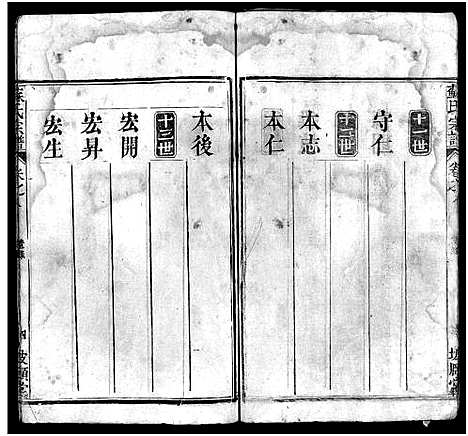 蘇氏宗譜
卷之八
十一世
守仁
十二世
本志
本仁
本後
十三世
宏開
宏昇
宏生
氏宗譜
卷之八